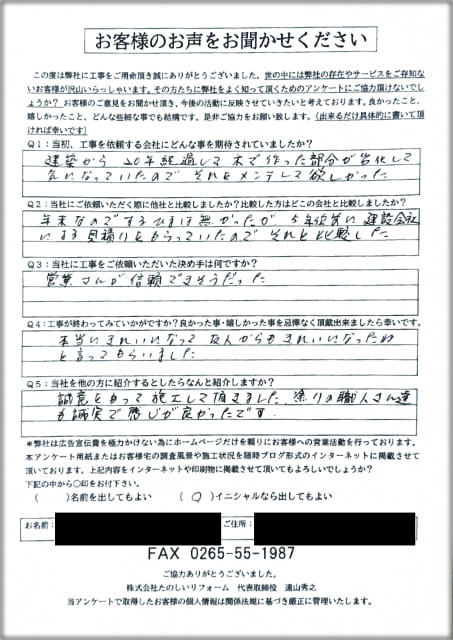 お客様のお声をお聞かせください
この度は弊社に工事をご用命頂き誠にありがとうございました。世の中には弊社の存在やサービスをご存知
ないお客様が沢山いらっしゃいます。その方たちに弊社をよく知って頂くためのアンケートにご協力頂けないでし
ょうか？ お客様のご意見をお聞かせ頂き、今後の活動に反映させていきたいと考えております。良かったこと、
嬉しかったこと、どんな些細な事でも結構です。是非ご協力をお願い致します。（出来るだけ具体的に書いて頂
ければ幸いです）
Q1：当初、工事を依頼する会社にどんな事を期待されていましたか？
建築から 20年経過して 木で作った部分が劣化して
気になっていたので それをメンテして欲しかった
Q2：当社にご依頼いただく際に他社と比較しましたか？比較した方はどこの会社と比較しましたか？
年末なのでするひまは無かったが 5年位前に 建設会社
にする見積りをもらっていたので それと比較した
Q3：当社に工事をご依頼いただいた決め手は何ですか？
営業さんが信頼できそうだった
Q4：工事が終わってみていかがですか？良かった事・嬉しかった事を忌憚なく頂戴出来ましたら幸いです。
本当にきれいになって 友人からもきれいになったね
と言ってもらいました
Q5：当社を他の方に紹介するとしたらなんと紹介しますか？
誠意をもって 施工して頂きました 塗りの職人さん達
も誠実で感じが良かったです
＊弊社は広告宣伝費を極力かけない為にホームページだけを頼りにお客様への営業活動を行っております。
本アンケート用紙またはお客様宅の調査風景や施工状況を随時ブログ形式のインターネットに掲載させて
頂いております。上記内容をインターネットや印刷物に掲載させて頂いてもよろしいでしょうか？
下記の中から○印をお付下さい。
（ ）名前を出してもよい （ ○ ）イニシャルなら出してもよい
お名前： ご住所：
FAX 0265-55-1987
ご協力ありがとうございました。
株式会社たのしいリフォーム 代表取締役 遠山秀之
当アンケートで取得したお客様の個人情報は関係法規に基づき厳正に管理いたします。